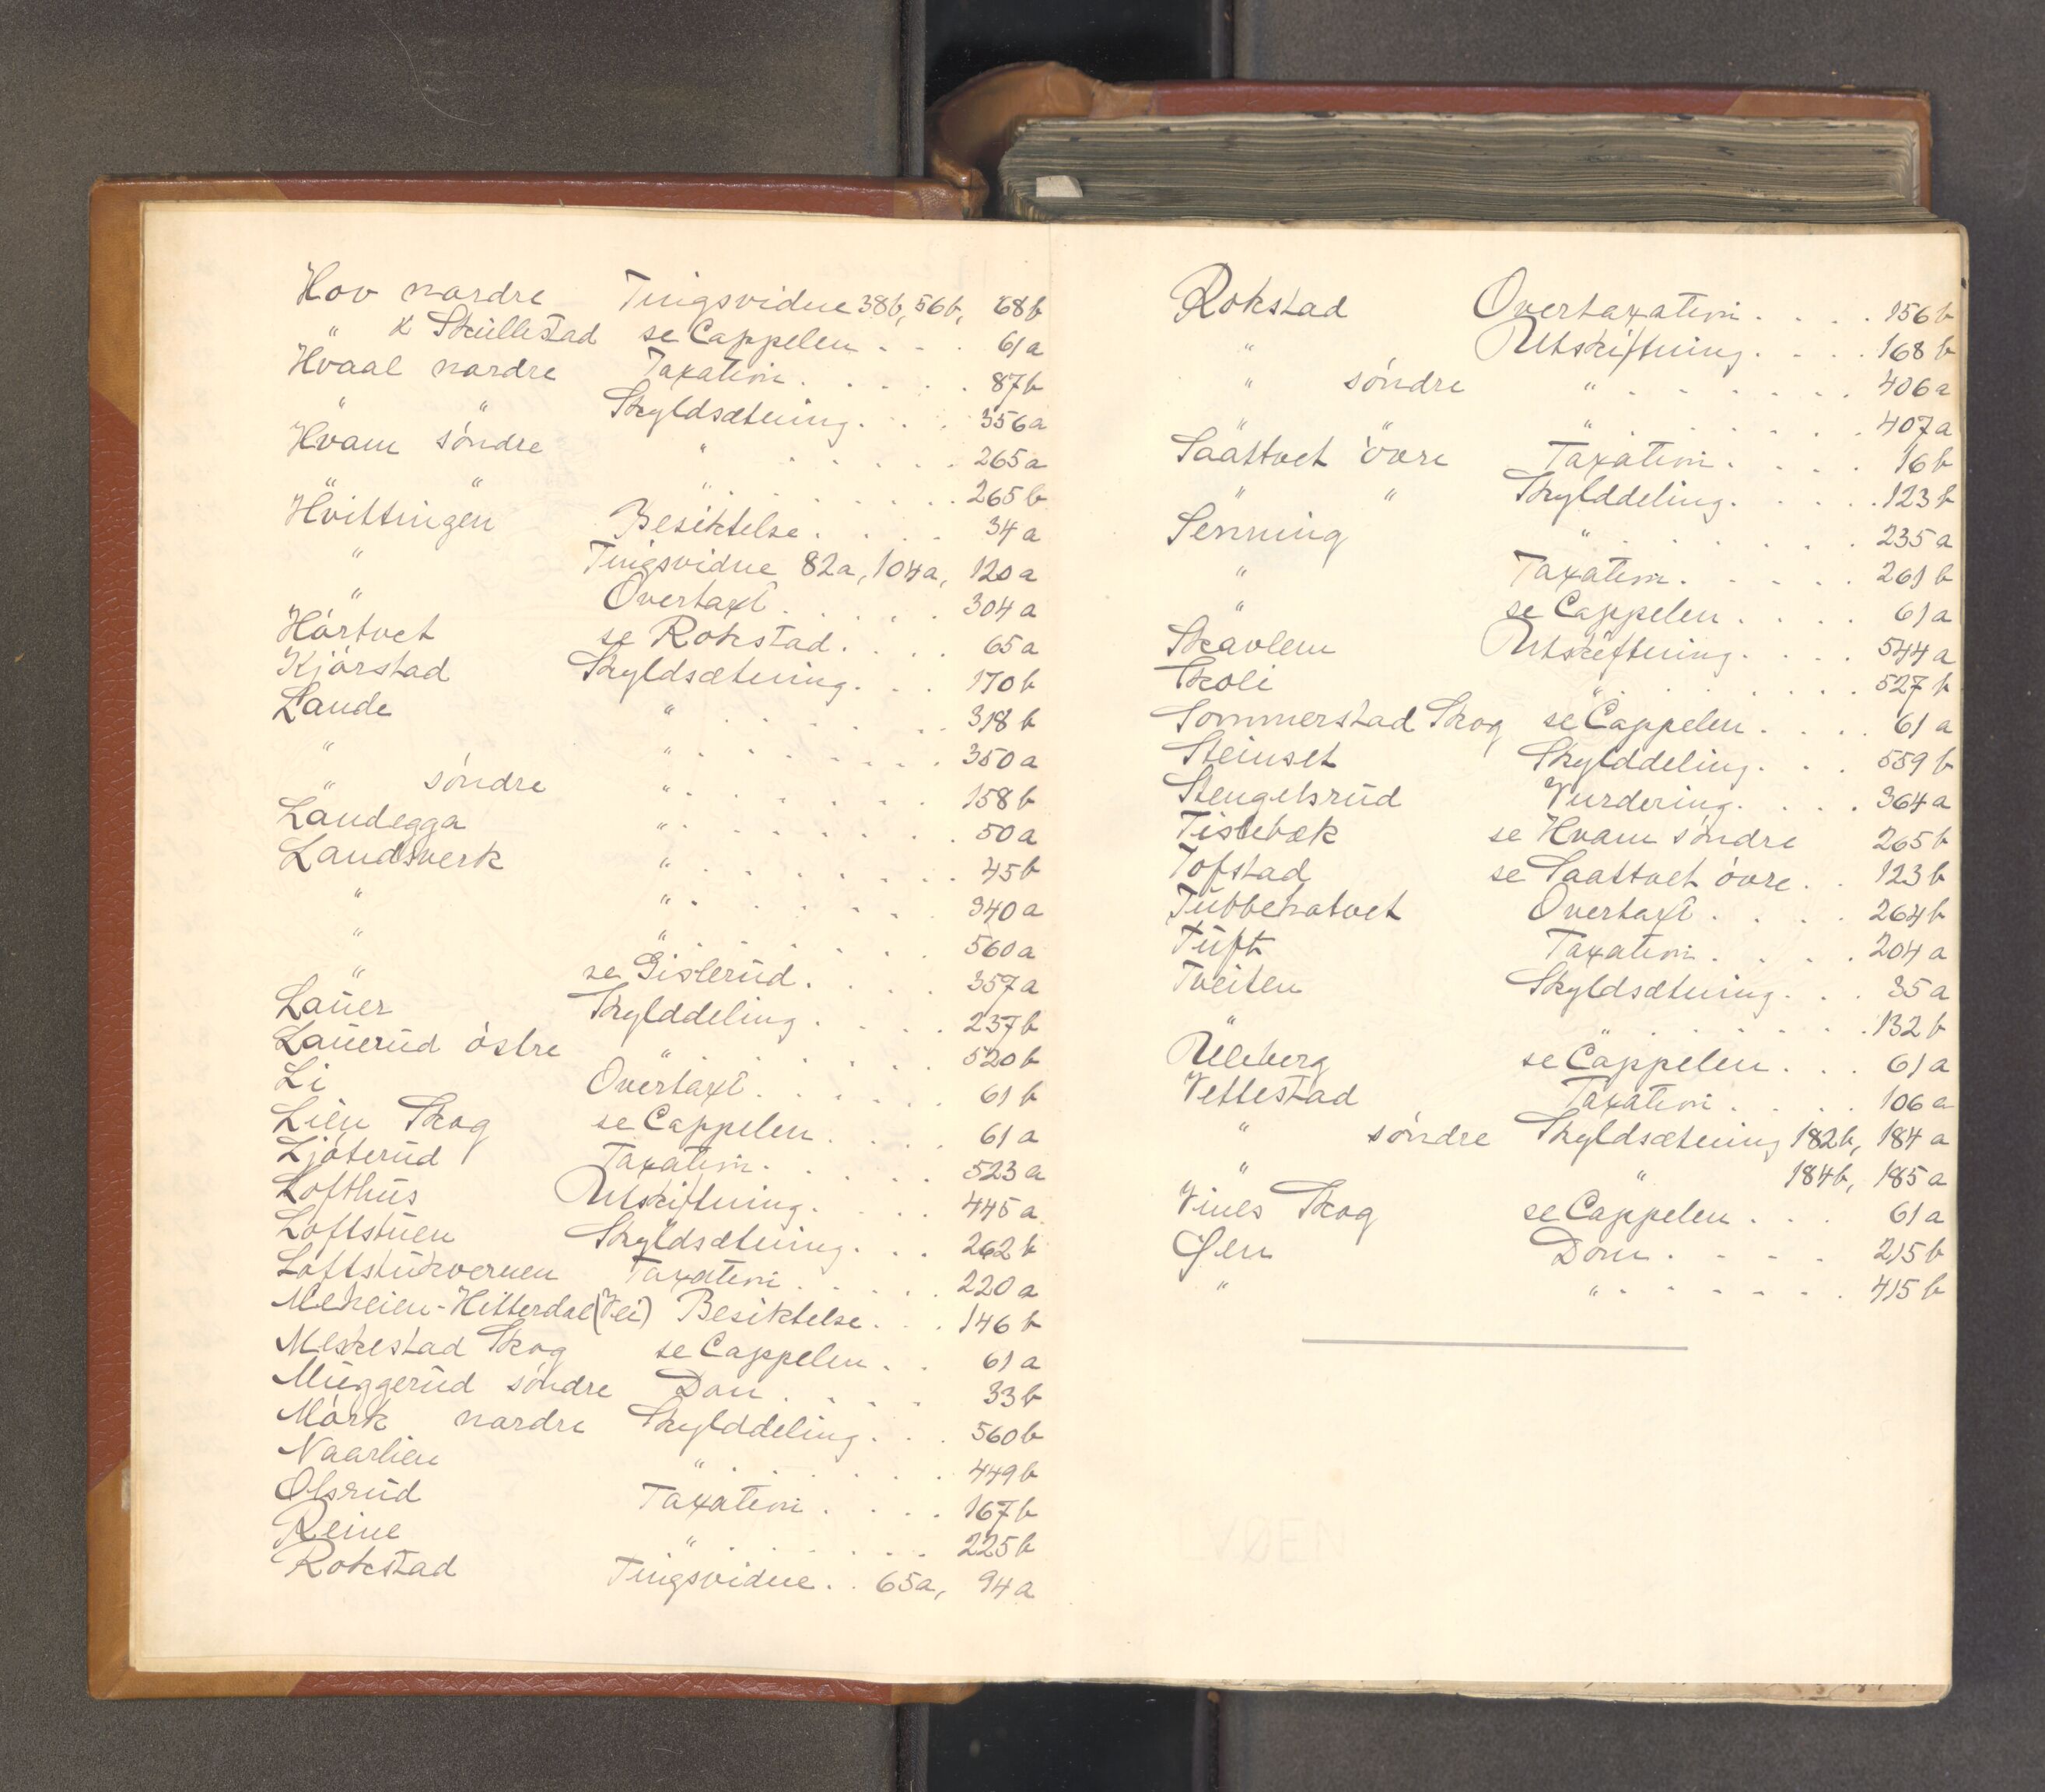 Hov nordre Tingsvidne 38b, 56b, 68b
" k Skullestad se Cappelen . . . 61a
Hvaal nordre Taxation . . . . . 87b
" " Skyldsætning . . . 356a
Hvam söndre " . . . . . 265a
" " " . . . . . . 265b
Hvittingen Besiktelse . . . . 34a
" Tingsvidne 82a, 104a, 120a
" Overtaxt . . . . . 304a
Hörtvet se Rokstad . . . . 65a
Kjörstad Skyldsætning . . . 170b
Lande " . . . . . . 318b
" " . . . . . . . 350a
" söndre " . . . . . . . 158b
Landegga " . . . . . . . 50a
Landsverk " . . . . . . . 45b
" " . . . . . . . 340a
" " . . . . . . 560a
" se Gislerud . . . . 357a
Lauer Skylddeling . . . . 237b
Lauerud östre " . . . . . . 520b
Li Overtaxt . . . . . . 61b
Lien Skog se Cappelen . . . . 61a
Ljöterud Taxation . . . . . 523a
Lofthus Utskiftning . . . . 445a
Loftstuen Skyldsætning . . . 262b
Loftstukvernen Taxation . . . . . 220a
Meheien-Hitterdal (Vei) Besiktelse . . . 146b
Meskestad Skog se Cappelen . . 61a
Muggerud söndre Dom . . . . 33b
Mörk nordre Skylddeling . . . 560b
Naarlien " . . . . . . 449b
Olsrud Taxation . . . . 167b
Reine " . . . . . . 225b
Rokstad Tingsvidne . . 65a, 94a
Rokstad Overtaxation . . . . 156b
" Utskiftning . . . . 168b
" söndre " . . . . . . 406a
" " " . . . . . . . 407a
Saattvet övre Taxation . . . . 16b
" " Skylddeling . . . . . 123b
Senning " . . . . . . 235a
" Taxation . . . . . 261b
" se Cappelen . . . . 61a
Skavlem Utskiftning . . . . 544a
Skoli " . . . . . . 527b
Sommerstad Skog se Cappelen . . . . 61a
Steinset Skylddeling . . . 559b
Stengelsrud Vurdering . . . . 364a
Tislebæk se Hvam söndre 265b
Tofstad se Saattvet övre . . 123b
Tubbehatvet Overtaxt . . . . 264b
Tuft Taxation . . . . 204a
Tveiten Skyldsætning . . . 35a
" " . . . . . . 132b
Ulleberg se Cappelen . . . 61a
Vettestad Taxation . . . . 106a
" söndre Skyldsætning 182b, 184a
" " 184b, 185a
Vines Skog se Cappelen . . . 61a
Öen Dom . . . . 215b
" " . . . . . . 415b